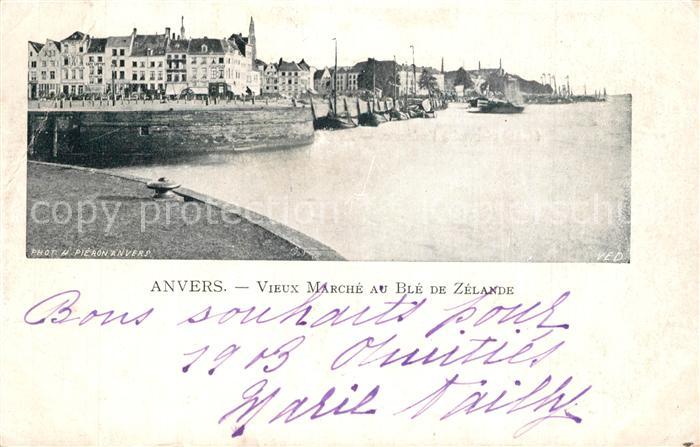 PHOT. H. PIÉRON ANVERS
VED
ANVERS. — VIEUX MARCHÉ AU BLÉ DE ZÉLANDE
Bons souhaits pour
1903 Amitiés
Marie